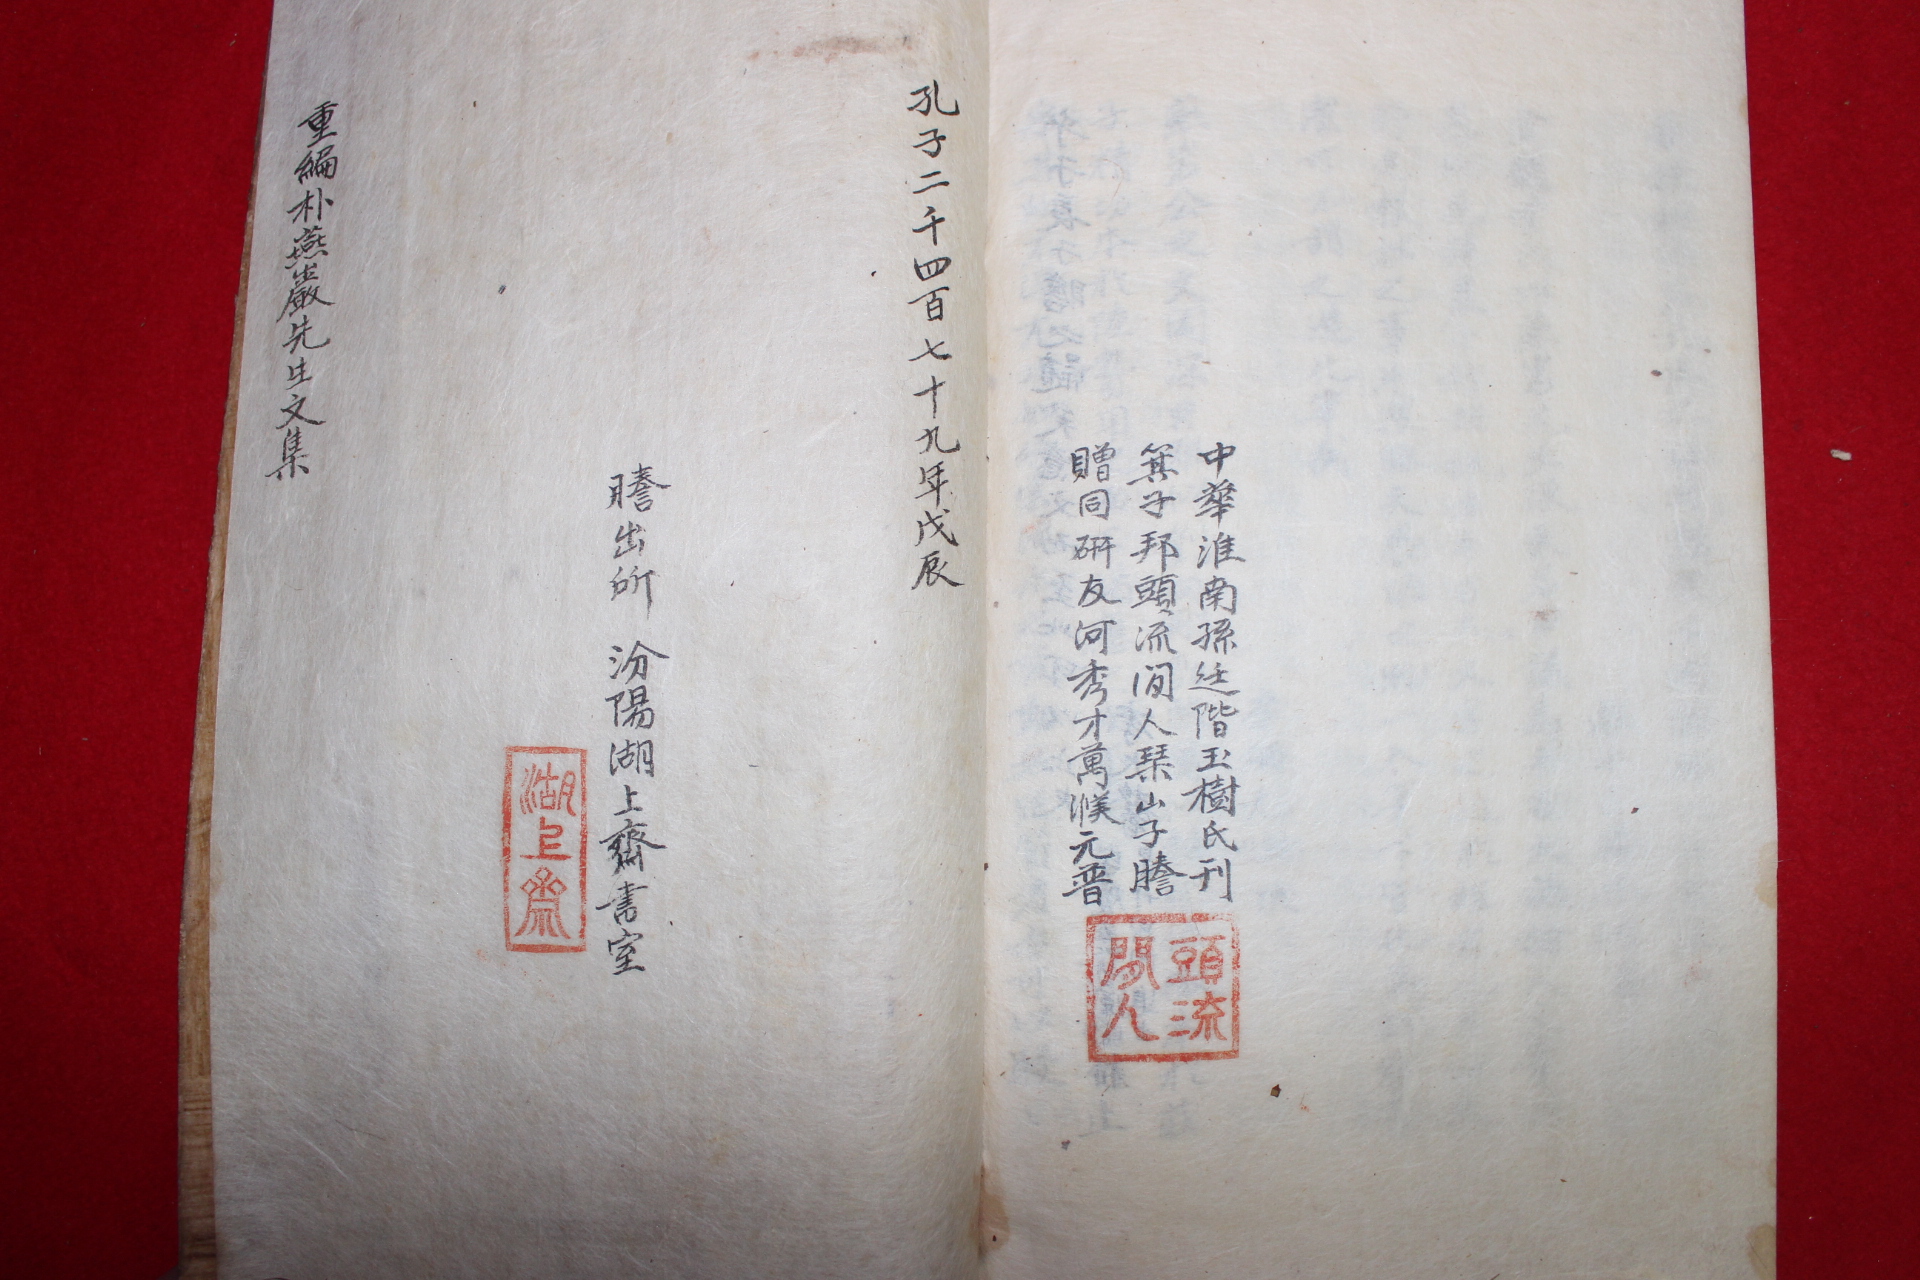 中華淮南孫廷階玉樹氏刊
箕子邦頭流間人琹山子謄
贈同研友河秀才萬濮元晋
頭流
間人
孔子二千四百七十九年戊辰
謄出所 汾陽湖上齋書室
湖上齋
重編朴燕巖先生文集